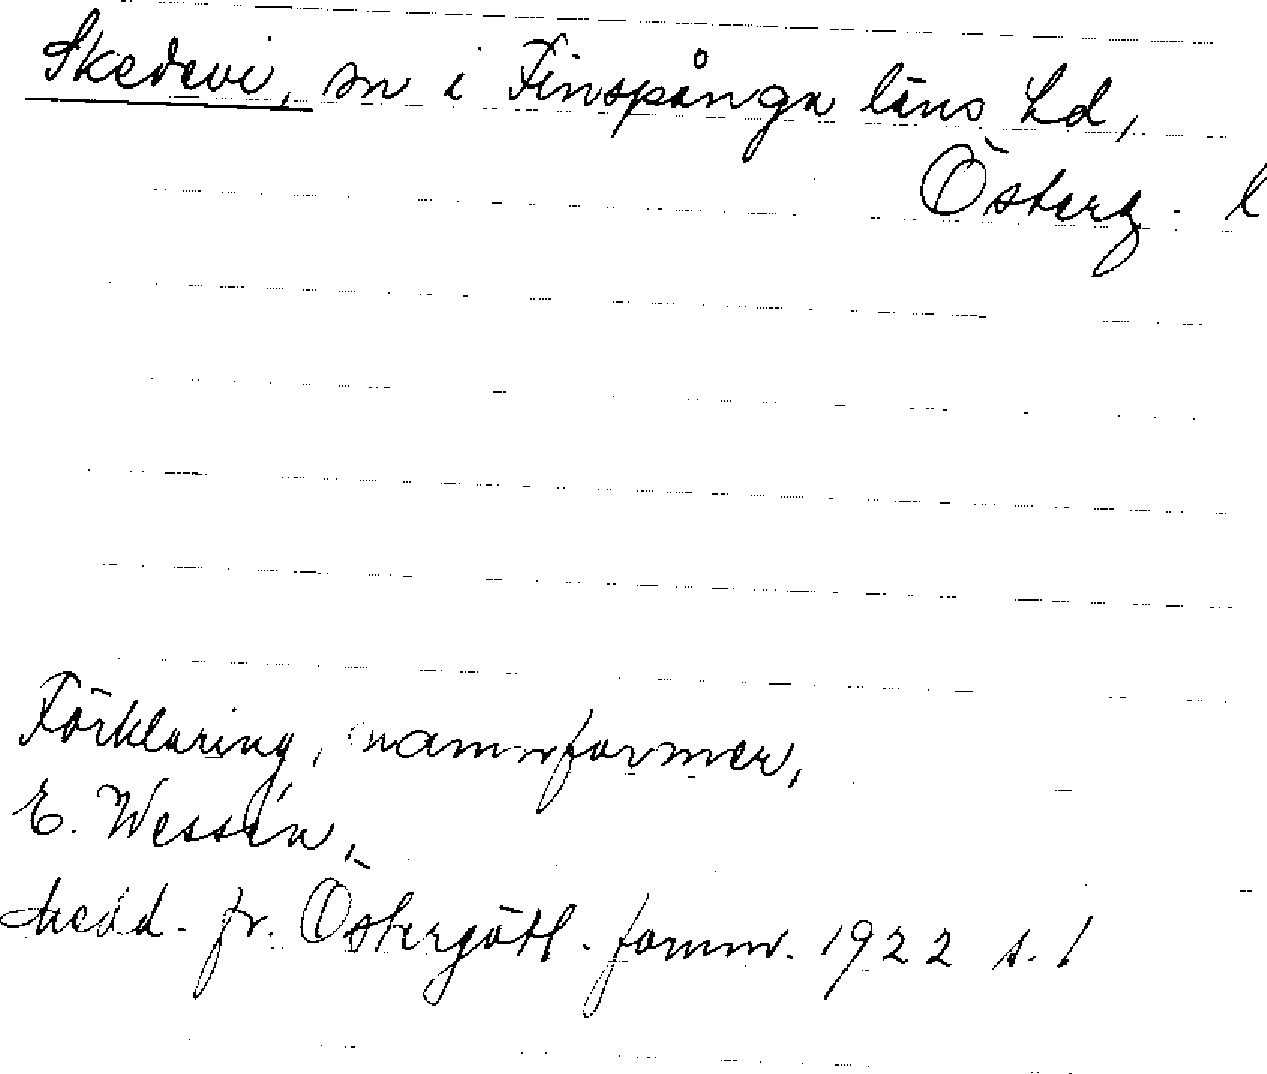 Skedevi, sn i Finspånga läns hd,
Österg. l
Förklaring, namnformer,
E. Wessén,
Medd. fr. Östergötl. fornm. 1922 s. 1